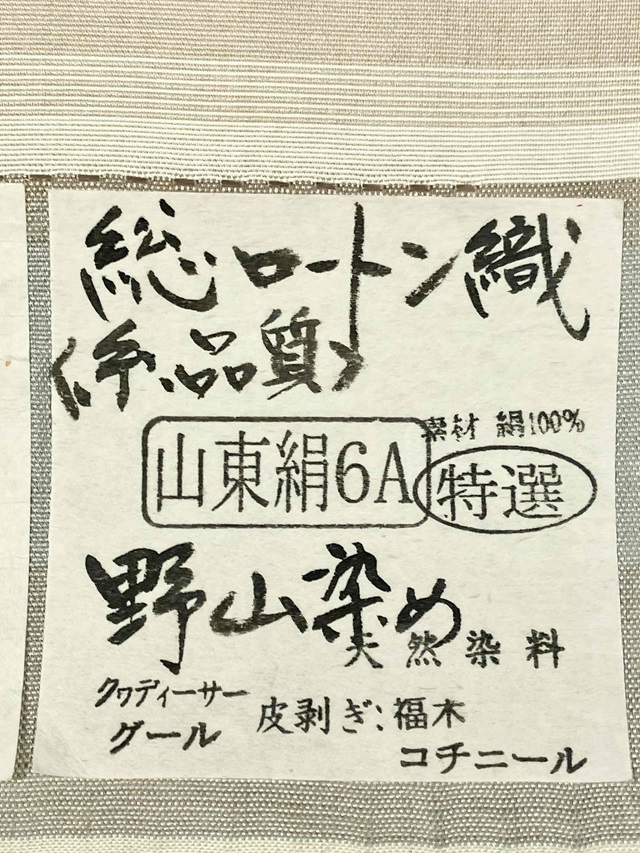 総ロートン織
(糸.品質)
素材 絹100%
山東絹6A 特選
野山染め
天然染料
クワディーサー
グール
皮剥ぎ:福木
コチニール